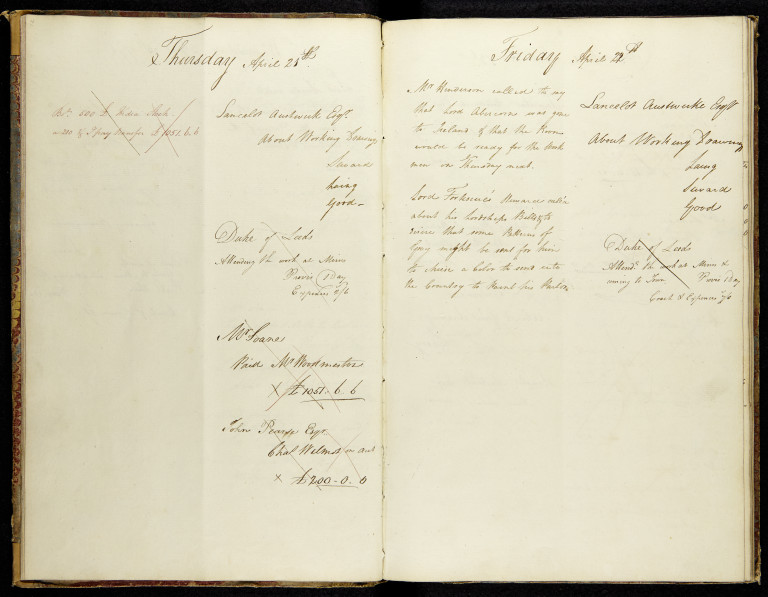 Thursday April 21st
500 £
£1051.6.6
Lancelot Austwick Esqr.
About Working Drawings
Seward
Laing
Good
Duke of Leeds
Attending the work at Mims
Provis 1 Day
Expences /6
Mr Soane
Paid Mr Woodmeston
£1051-6-6
John Pearse Esqr.
Chas Wilmot on acct
£200-0-0
Friday April 22d
Mr Henderson called to say
that Lord Abercorn was gone
to Ireland & that the Room
would be ready for the Work
men on Thursday next.
Lord Fortescue's Steward called
about his Lordships Bills &
desire that some Patterns of
Grey might be sent for him
to chuse a Color to send into
the Country to Paint his Parlor
Lancelot Austwick Esqr
About Working Drawings
Laing
Seward
Good
Duke of Leeds
Attendg the work at Mims &
coming to Town Provis 1 Day
Coach & Expences /6